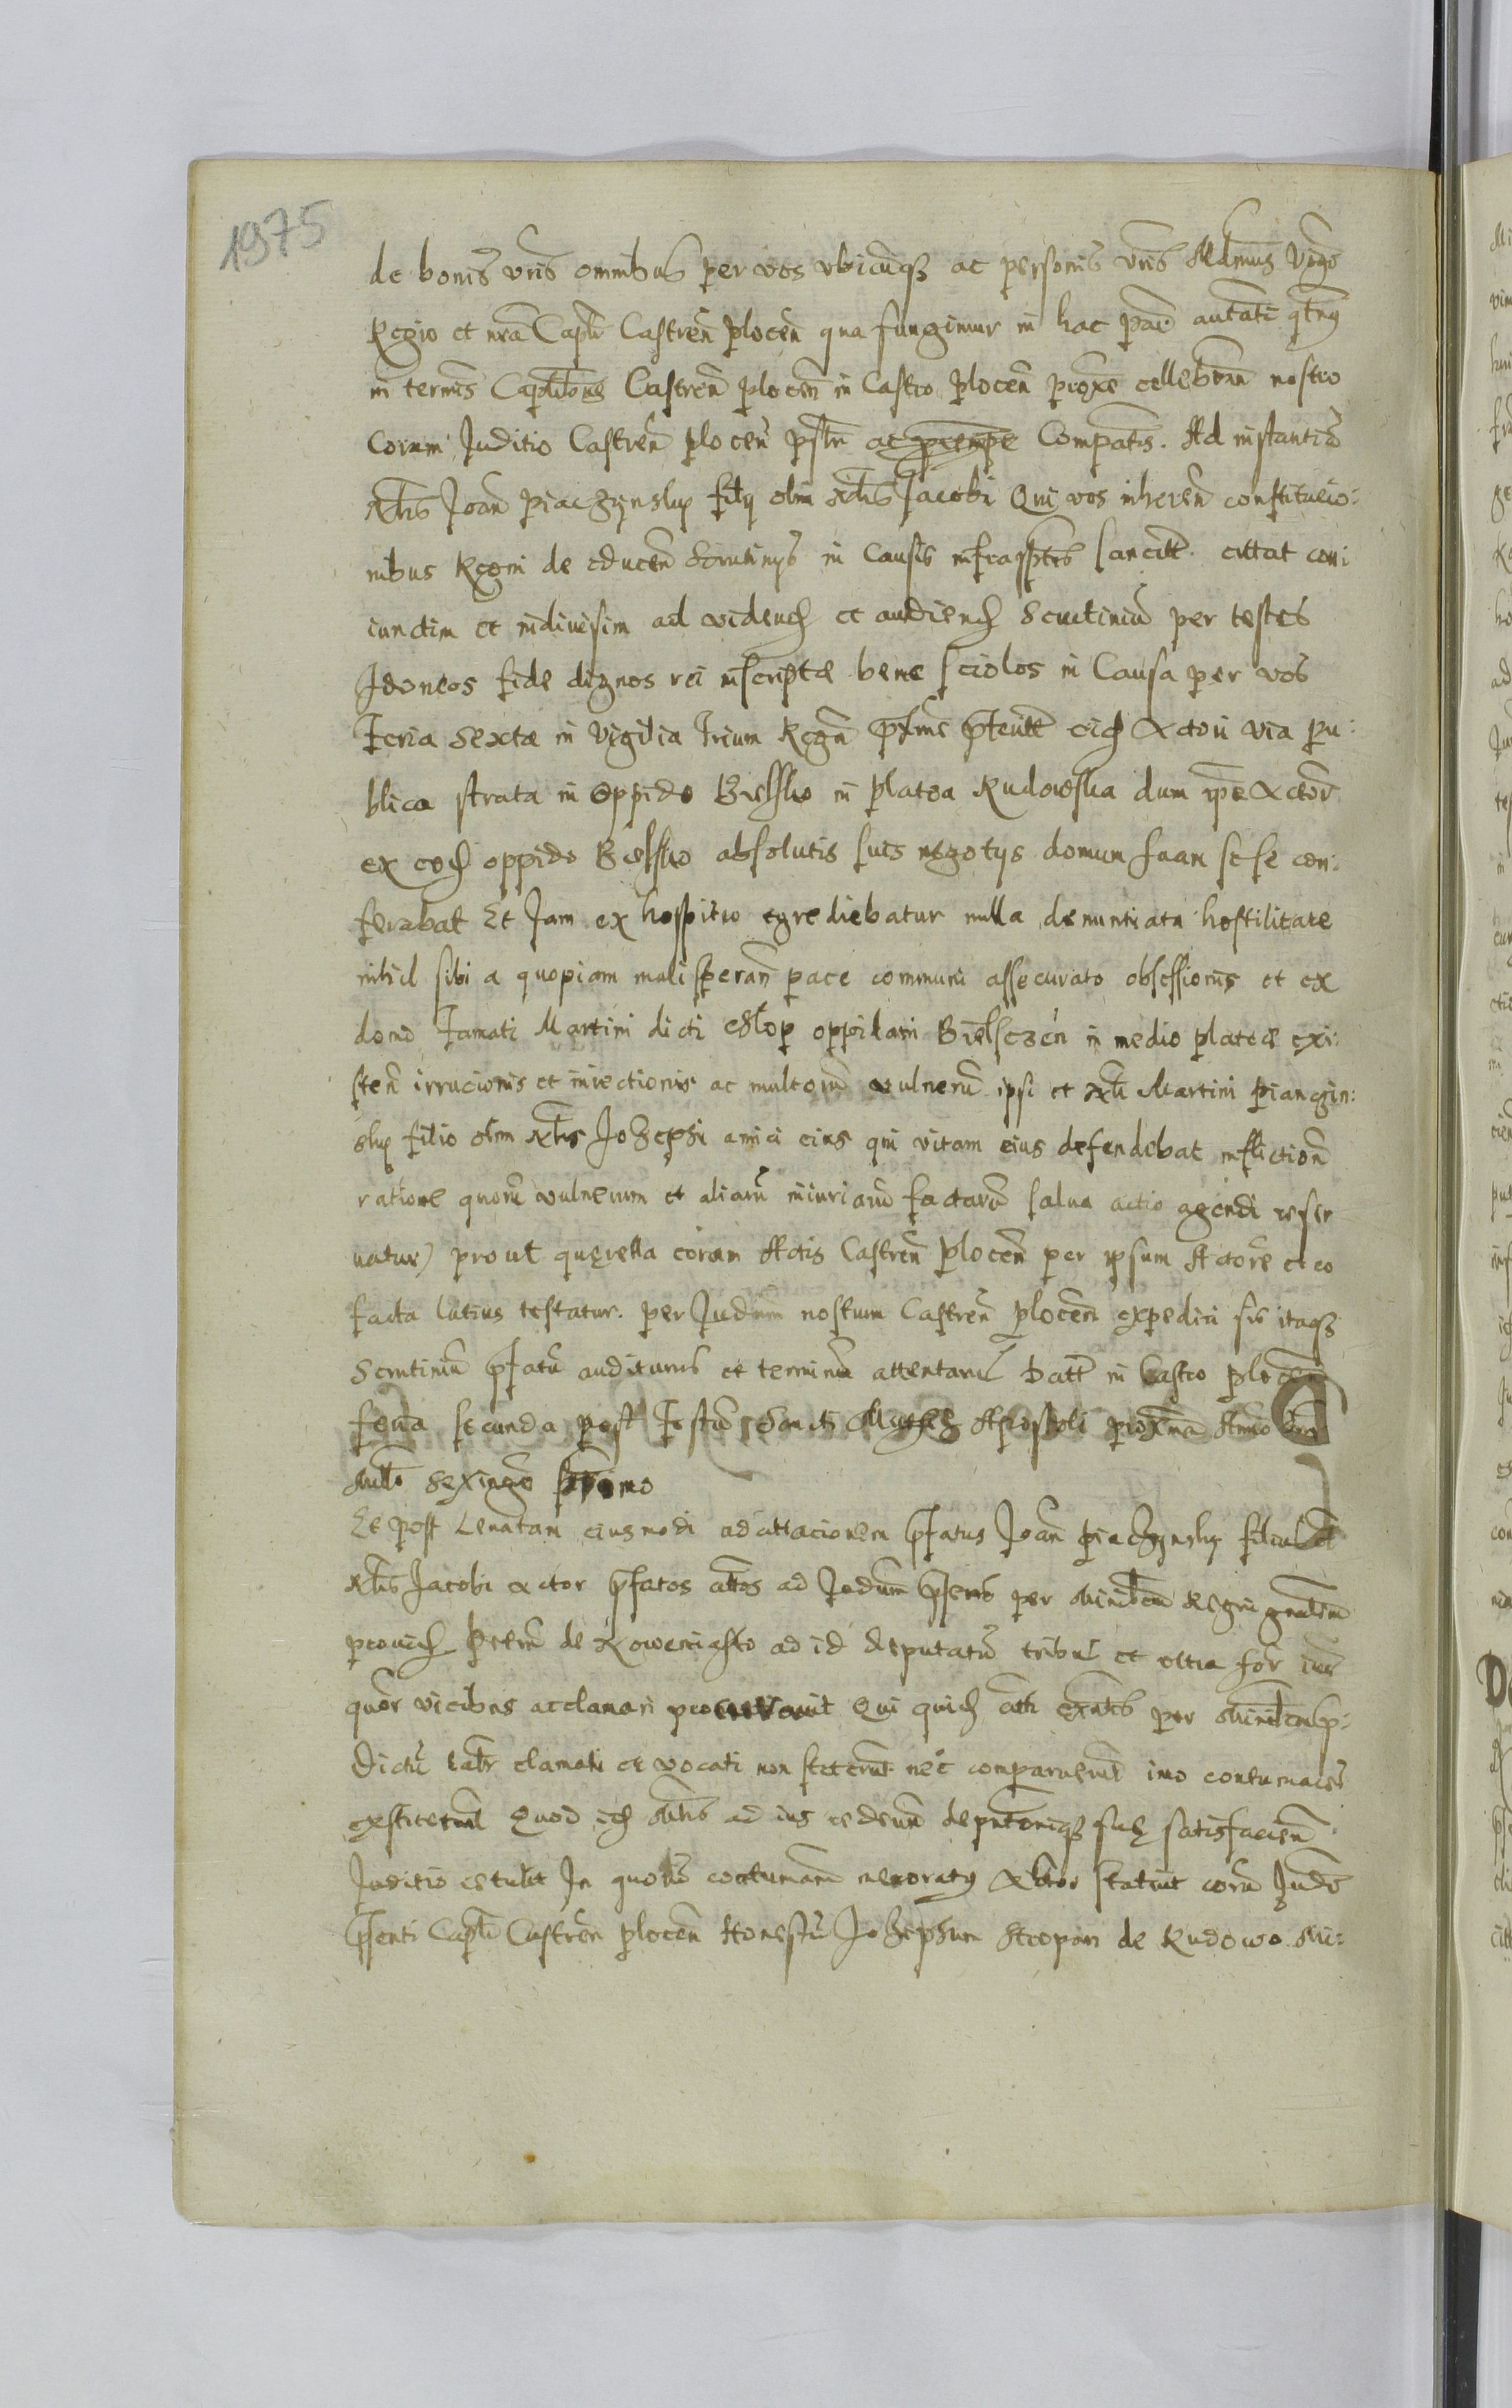 1975
de bonis vris omnibus per vos vbicunqz ac personis vris Mdmus Vigo
Regio et nra Captli Castren plocen qua fungimur in hac parte auttati qtnus
in termis Captlibus Castren plocen in Castro plocen proxe cellebran nostro
Coram Juditio Castren plocen psltr Compatis. Ad instantia
Nblis Joan Piaczynsky filij olim Nblis Jacobi Qui vos inheren constitucio:
nibus Regni de educen Scrutinys in Causis infrasptis sancitt. cittat coni
iunctim et indiuisim ad videnđ et audienđ Scrutiniu per testes
Idoneos fide dignos rei inscriptæ bene sciolos in Causa per vos
Feria Sexta in Vigilia Trium Regu pxime pterita eiđ Actori via pu:
blica strata in oppido Bielsko in platea Rudowska dum ipse Actor
ex eođ oppido Bielsko absolutis suis negotys domum suam sese con:
ferabat Et Jam ex hospitio egrediebatur nulla denuntiata hostilitate
nihil sibi a quopiam mali speran pace communi assecurato obsessionis et ex
domo Famati Martini dicti Cslop oppidani Bielsczen in medio plateæ exi:
sten irrucionis et iniectionis ac multoru vulneru ipsi et Nbli Martini Piangin:
sky filio olim Nblis Jozephi amici eius qui vitam eius defendebat infliction
ratione quoru vulnerum et aliaru iniuriaru factaru salua actio agendi reser
uatur) prout querella coram Actis Castren plocen per ipsum Actore et eo
facta latius testatur. per Judium nostrum Castren plocen expediri sis itaqz
Scrutiniu pfatu audituris et terminu attentaru Datt in Castro plocen
feria secunda post Festu Sancti Apostoli proxima Anno Dni
Millo Sexingo septimo
Et post Lenatam eiusmodi adcittacionem pfatus Joan Piaczynsky filius olim
Nblis Jacobi Actor pfatos cittos ad Judium psens per Minlem Regni gnalem
prouiđ Petrum de Roweni ad id deputatu tribus et vltra for iuris
quor vicibus acclamari procurauit Qui quiđ citti exntes per Minlem sup:
dictu taltr clamati et vocati non steterunt nec comparuerunt imo contumaces
exstiterunt Quod iđ Minlis ad ius rediens deputoniqz suæ satisfacien
Juditio retulit In quoru contumatia memoratus Actor statuit coram Judo
psenti Captli Castren plocen Honestu Jozephum Stropan de Rudowo Mi: